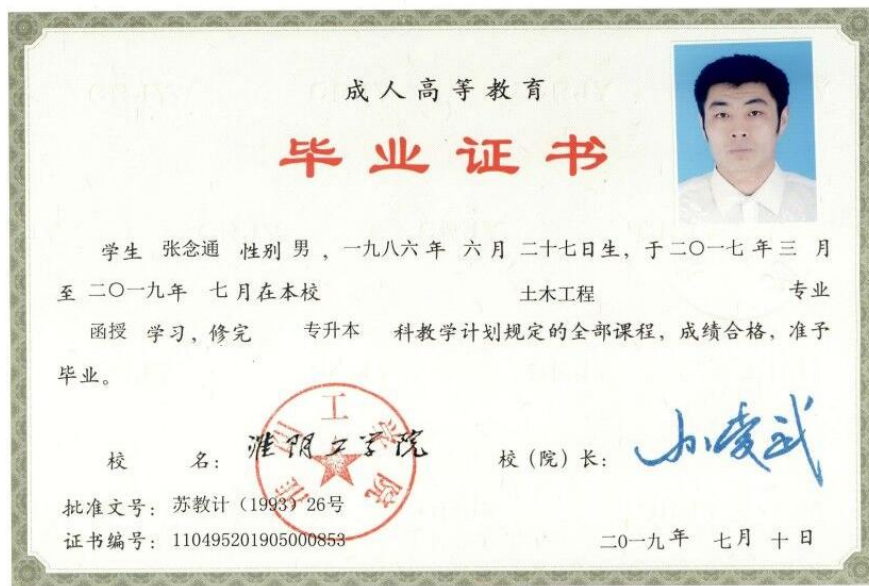 成人高等教育
毕业证书
学生 张念通 性别 男，一九八六年 六月 二十七日生，于二〇一七年三 月
至 二〇一九年 七月在本校 土木工程 专业
函授 学习，修完 专升本 科教学计划规定的全部课程，成绩合格，准予
毕业。
校 名：淮阴工学院 校（院）长：
批准文号：苏教计（1993）26号
证书编号：110495201905000853 二〇一九年 七月 十日